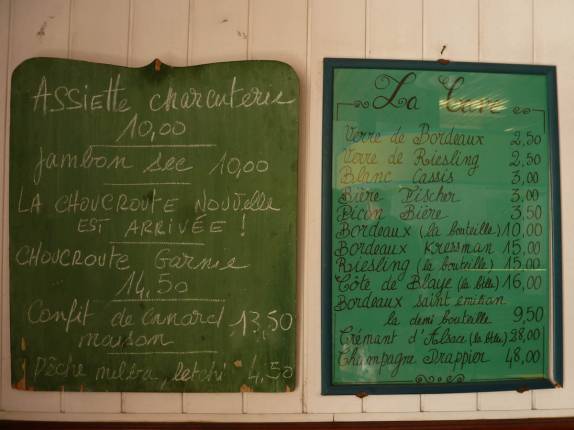 ASSIETTE charcuterie
10,00
Jambon sec 10,00
LA CHOUCROUTE NOUVELLE
EST ARRIVÉE !
CHOUCROUTE Garnie
14,50
Confit de canard 13,50
maison
Pêche melba, letchi 4,50
La Cave
Verre de Bordeaux 2,50
Verre de Riesling 2,50
Blanc Cassis 3,00
Bière Fischer 3,00
Picon Bière 3,50
Bordeaux (la bouteille) 10,00
Bordeaux Kressman 15,00
Riesling (la bouteille) 15,00
Côte de Blaye (la btlle) 16,00
Bordeaux saint emilion
la demi bouteille 9,50
Crémant d'Alsace (la btlle) 28,00
Champagne Drappier 48,00